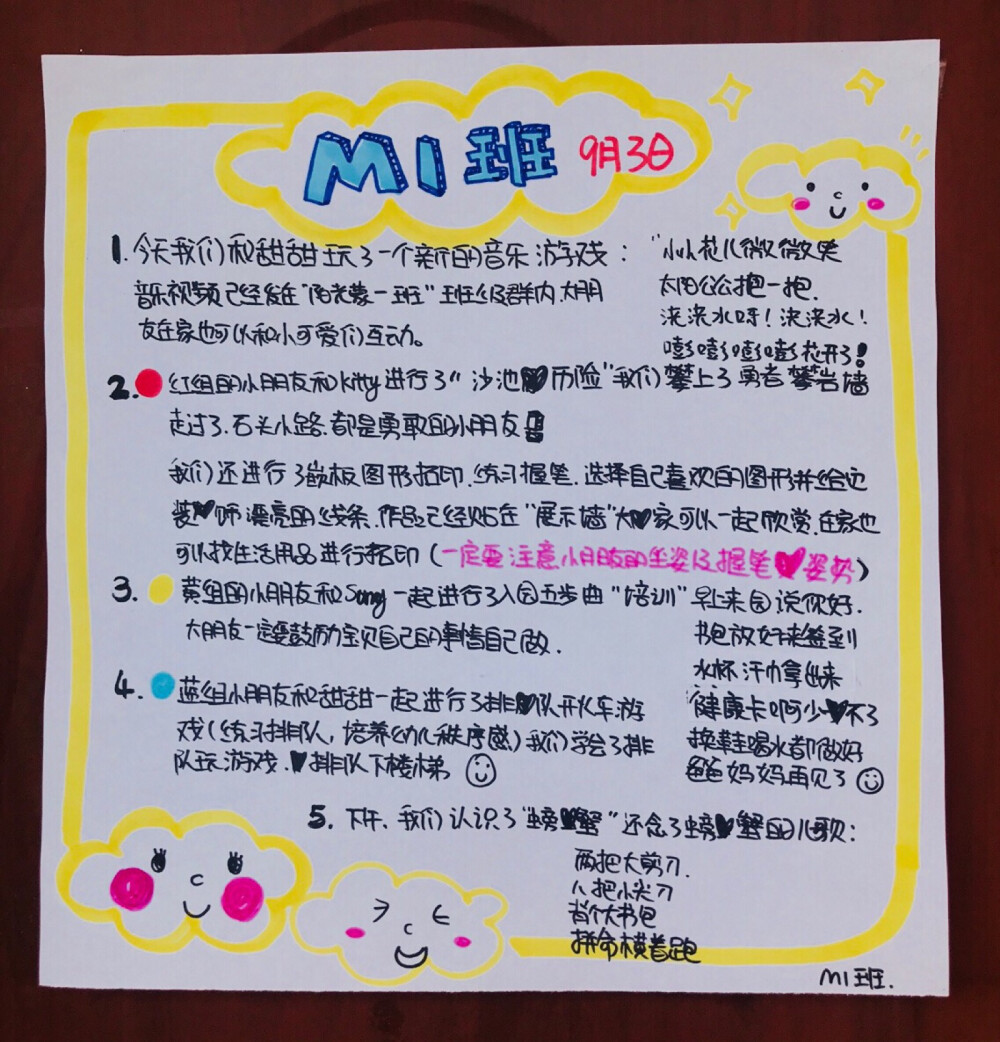 M1班 9月3日
1.今天我们和甜甜玩了一个新的音乐游戏:
音乐视频已经发在"阳光蒙一班"班级群内.大朋
友在家也可以和小可爱们互动。
"小小花儿微微笑
太阳公公抱一抱.
浇浇水呀!浇浇水!
嘭嘭嘭嘭花开了!
2.红组的小朋友和Kitty进行了"沙池历险"我们攀上了勇者攀岩墙
走过了.石头小路.都是勇敢的小朋友
我们还进行了嵌板图形拓印.练习握笔.选择自己喜欢的图形并给它
装饰漂亮的线条.作品已经贴在"展示墙"大家可以一起欣赏.在家也
可以找生活用品进行拓印(一定要注意小朋友的坐姿以及握笔姿势)
3.黄组的小朋友和Song一起进行了入园五步曲"培训"
大朋友一定要鼓励宝贝自己的事情自己做.
早上来园说你好.
书包放好来签到
水杯汗巾拿出来
健康卡啊少不了
换鞋喝水都做好
爸爸妈妈再见了
4.蓝组小朋友和甜甜一起进行了排队开火车游
戏(练习排队,培养幼儿秩序感)我们学会了排
队玩游戏.排队下楼梯
5.下午、我们认识了"螃蟹"还念了螃蟹的儿歌:
两把大剪刀.
八把小尖刀
背个大书包
拼命横着跑
M1班.